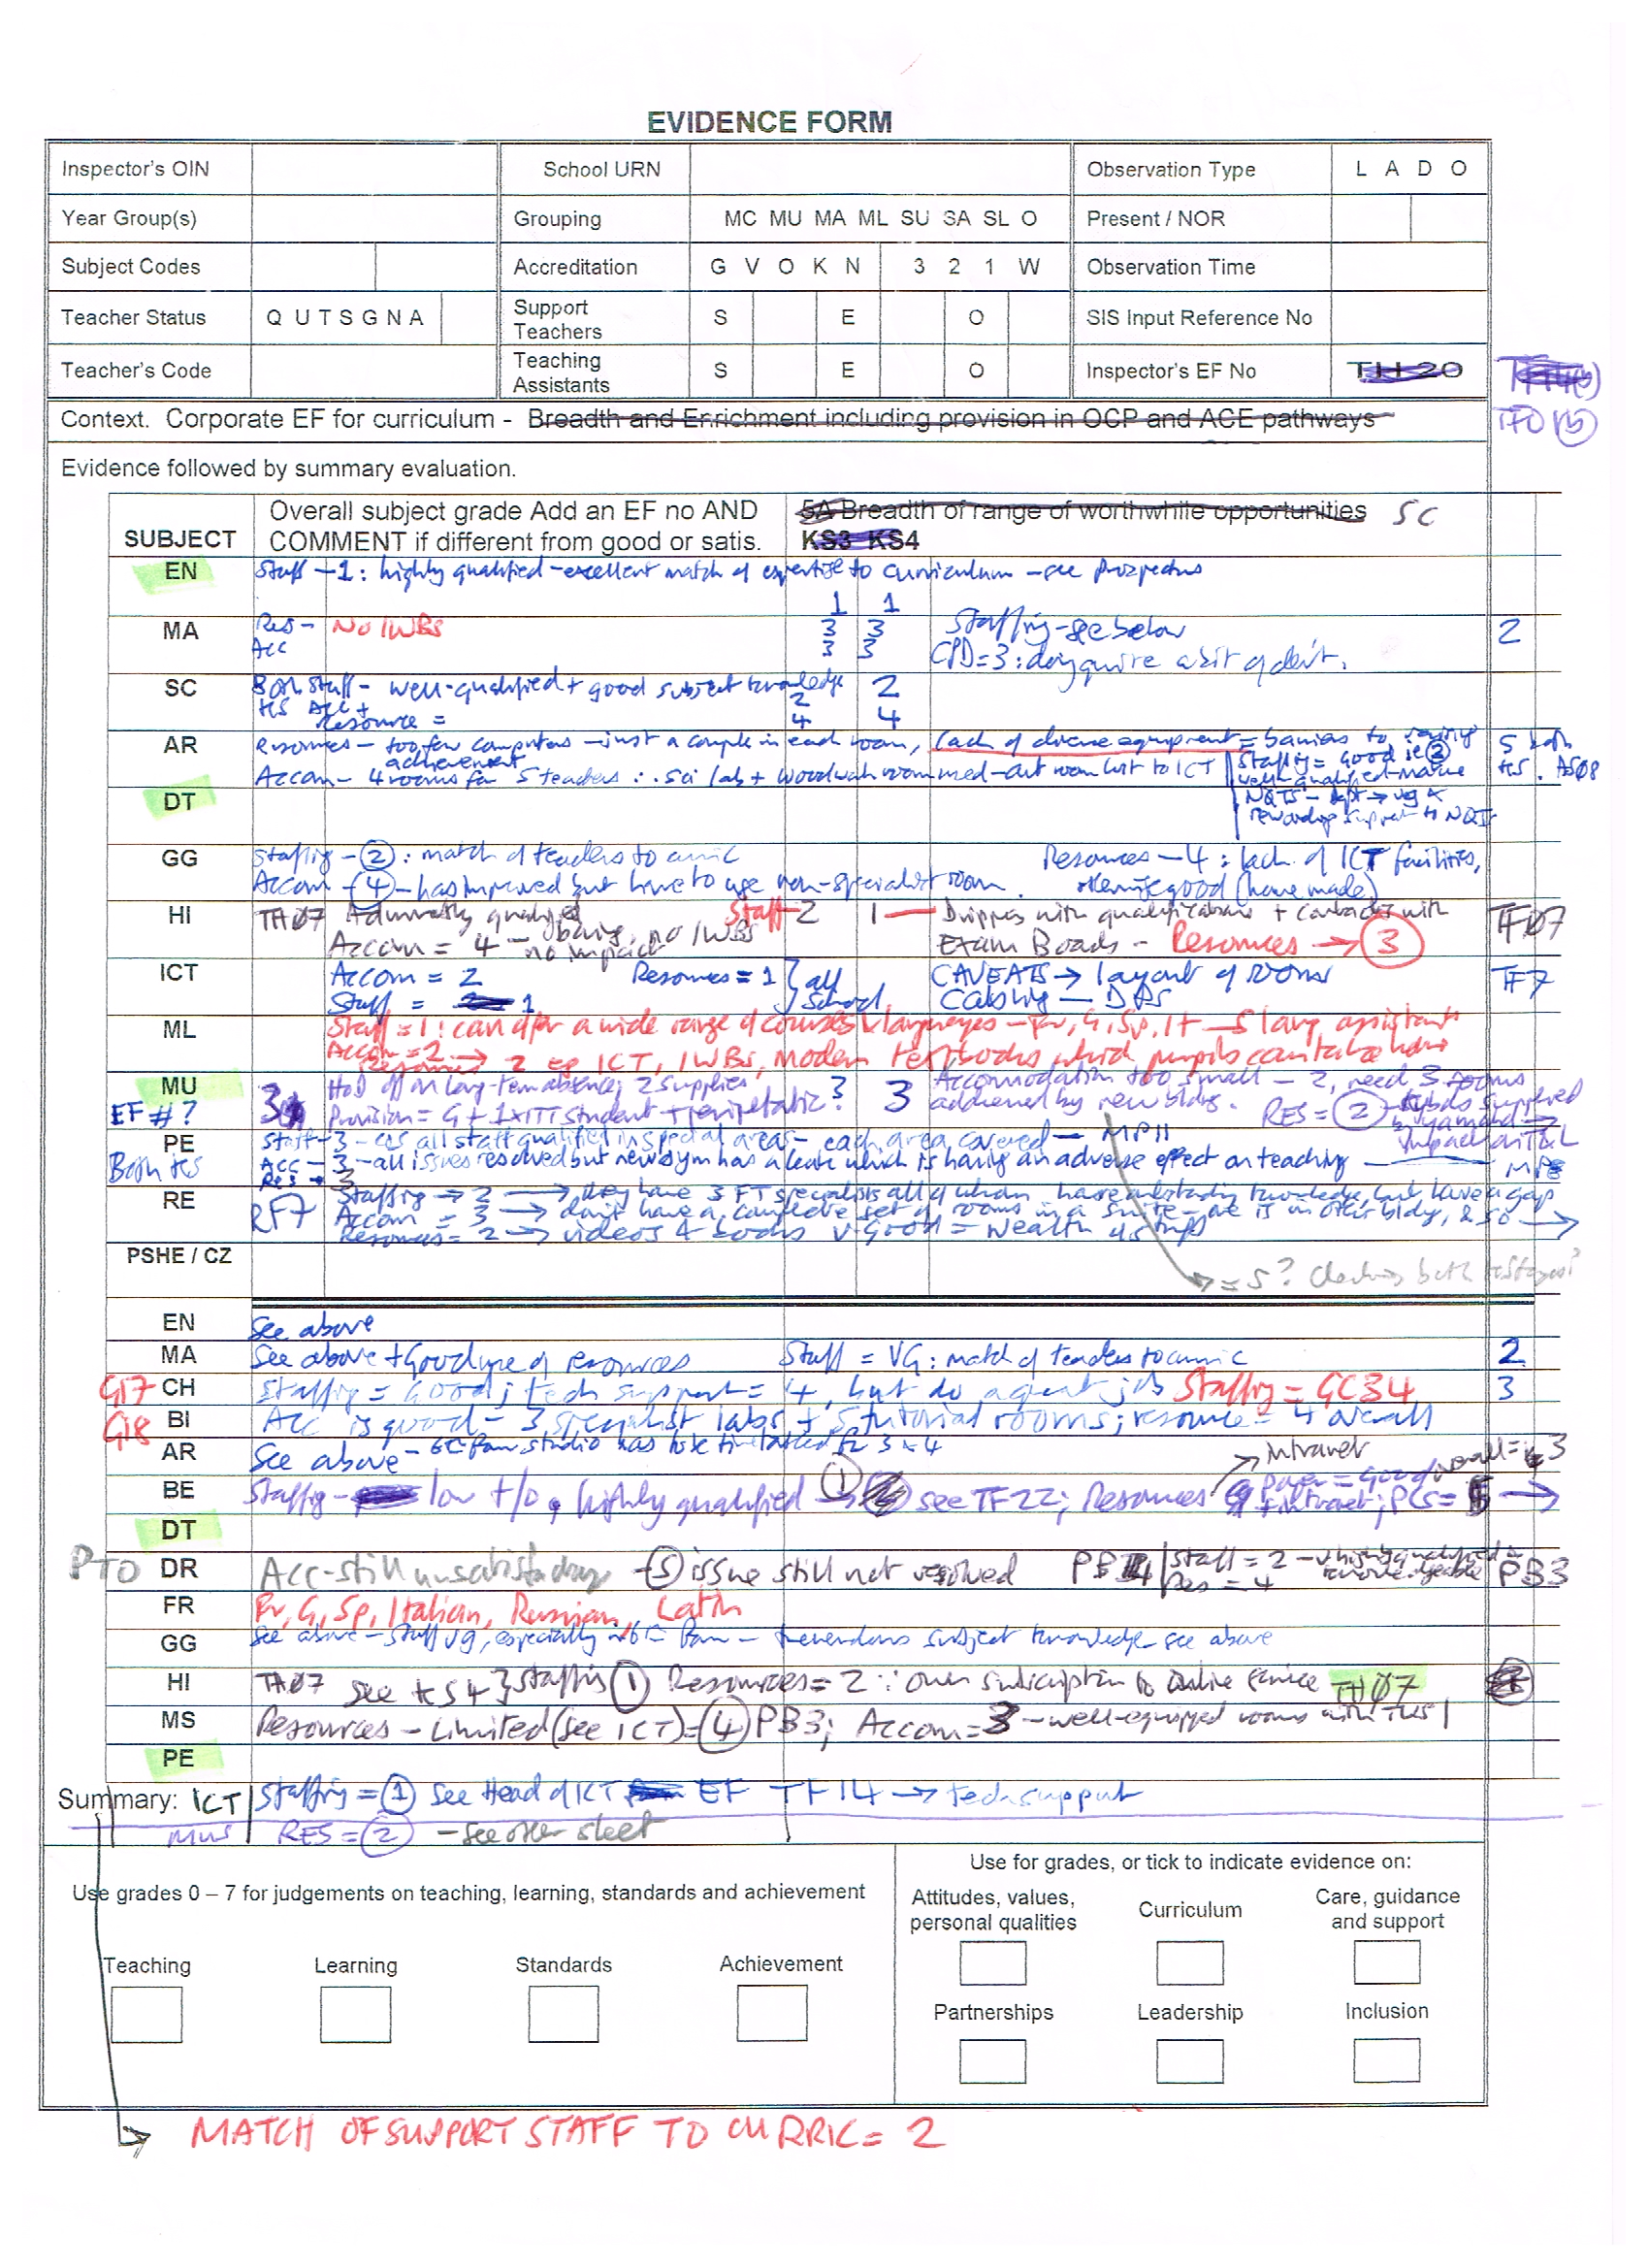 EVIDENCE FORM
Inspector's OIN School URN Observation Type L A D O
Year Group(s) Grouping MC MU MA ML SU SA SL O Present / NOR
Subject Codes Accreditation G V O K N 3 2 1 W Observation Time
Teacher Status Q U T S G N A Support Teachers S E O SIS Input Reference No
Teacher's Code Teaching Assistants S E O Inspector's EF No TH 20
Context. Corporate EF for curriculum - Breadth and Enrichment including provision in OCP and ACE pathways
Evidence followed by summary evaluation.
SUBJECT Overall subject grade Add an EF no AND COMMENT if different from good or satis. 5A Breadth of range of worthwhile opportunities 5C
KS3 KS4
EN Staff - 1: highly qualified - excellent match of expertise to curriculum - see prospectus
1 1
MA Res - No IWBs 3 3 Staffing - see below 2
Acc 3 3 CPD = 3:
SC Both staff - well-qualified + good subject knowledge 2 2
KS Acc + Resource = 4 4
AR Resources - too few computers - just a couple in each room, lack of diverse equipment = barriers to raising achievement 5 both KS. AS08
Accom - 4 rooms for 5 teachers ∴ sci lab + woodwork room used - art room lost to ICT
Staffing = Good ie 2
well-qualified - mature
NQTs - dept → vg &
support to NQTs
DT
GG Staffing - 2: match of teachers to curric Resources - 4: lack of ICT facilities,
Accom - 4 - has improved but have to use non-specialist room. otherwise good (have made)
HI TH07 Adequately qualified Staff 2 1 - Drippes with qualifications + contacts with TF07
Accom = 4 - no IWBs no impact Exam Boards - Resources → 3
ICT Accom = 2 Resources = 1 } all School CAVEATS → layout of rooms TF7
Staff = 1 Cabling - DAs
ML Staff = 1: can offer a wide range of courses & languages - Fr, G, Sp, It - 5 lang assistants
Accom = 2
Resources → 2 eg ICT, IWBs, modern textbooks which pupils can take home
MU 3 HoD off on long-term absence, 2 supplies 3 3 Accommodation too small - 2, need 3 rooms
EF #? Provision = G + 1 x ITT student + peripatetic addressed by new bldg. RES = 2
PE Staff - 3 - all staff qualified in special areas - each area covered - MP11
Both KS Acc - 3 - all issues resolved but new gym has a leak which is having an adverse effect on teaching - MP8
Res - 3
RE RF7 Staffing → 2 → they have 3 FT specialists all of whom have outstanding knowledge, but have a gap
Accom = 3 → don't have a complete set of rooms in a suite - one is in other bldg, & so →
Resources = 2 → videos & books v good = wealth
PSHE / CZ = 5? checking both keystages?
EN See above
MA See above + Good use of resources Staff = VG: match of teachers to curric 2
G17 CH Staffing = Good; tech support = 4, but do a great job Staffing = GC34 3
G18 BI Acc is good - 3 specialist labs + 5 tutorial rooms; resource = 4 overall
AR See above - 6th Form studio has to be timetabled for 3 & 4
BE Staffing - low t/o, highly qualified → 1 see TF22; Resources → Intranet overall = 3
paper = Good + intranet; PCs = 5 →
DT
PTO DR Acc - still unsatisfactory - 5 issue still not resolved PB4 Staff = 2 - v highly qualified & knowledgeable PB3
Res = 4
FR Fr, G, Sp, Italian, Russian, Latin
GG See above - Staff vg, especially in 6th Form - tremendous subject knowledge - see above
HI TH07 See KS4 } staffing 1 Resources = 2 ∵ own subscription to online service TH07
MS Resources - Limited (see ICT) = 4 PB3; Accom = 3 - well-equipped rooms with TVs
PE
Summary: ICT Staffing = 1 See Head of ICT EF TF14 → tech support
Mus RES = 2 - see other sheet
Use grades 0 – 7 for judgements on teaching, learning, standards and achievement
Use for grades, or tick to indicate evidence on:
Attitudes, values, personal qualities Curriculum Care, guidance and support
Teaching Learning Standards Achievement
Partnerships Leadership Inclusion
MATCH OF SUPPORT STAFF TO CURRIC = 2